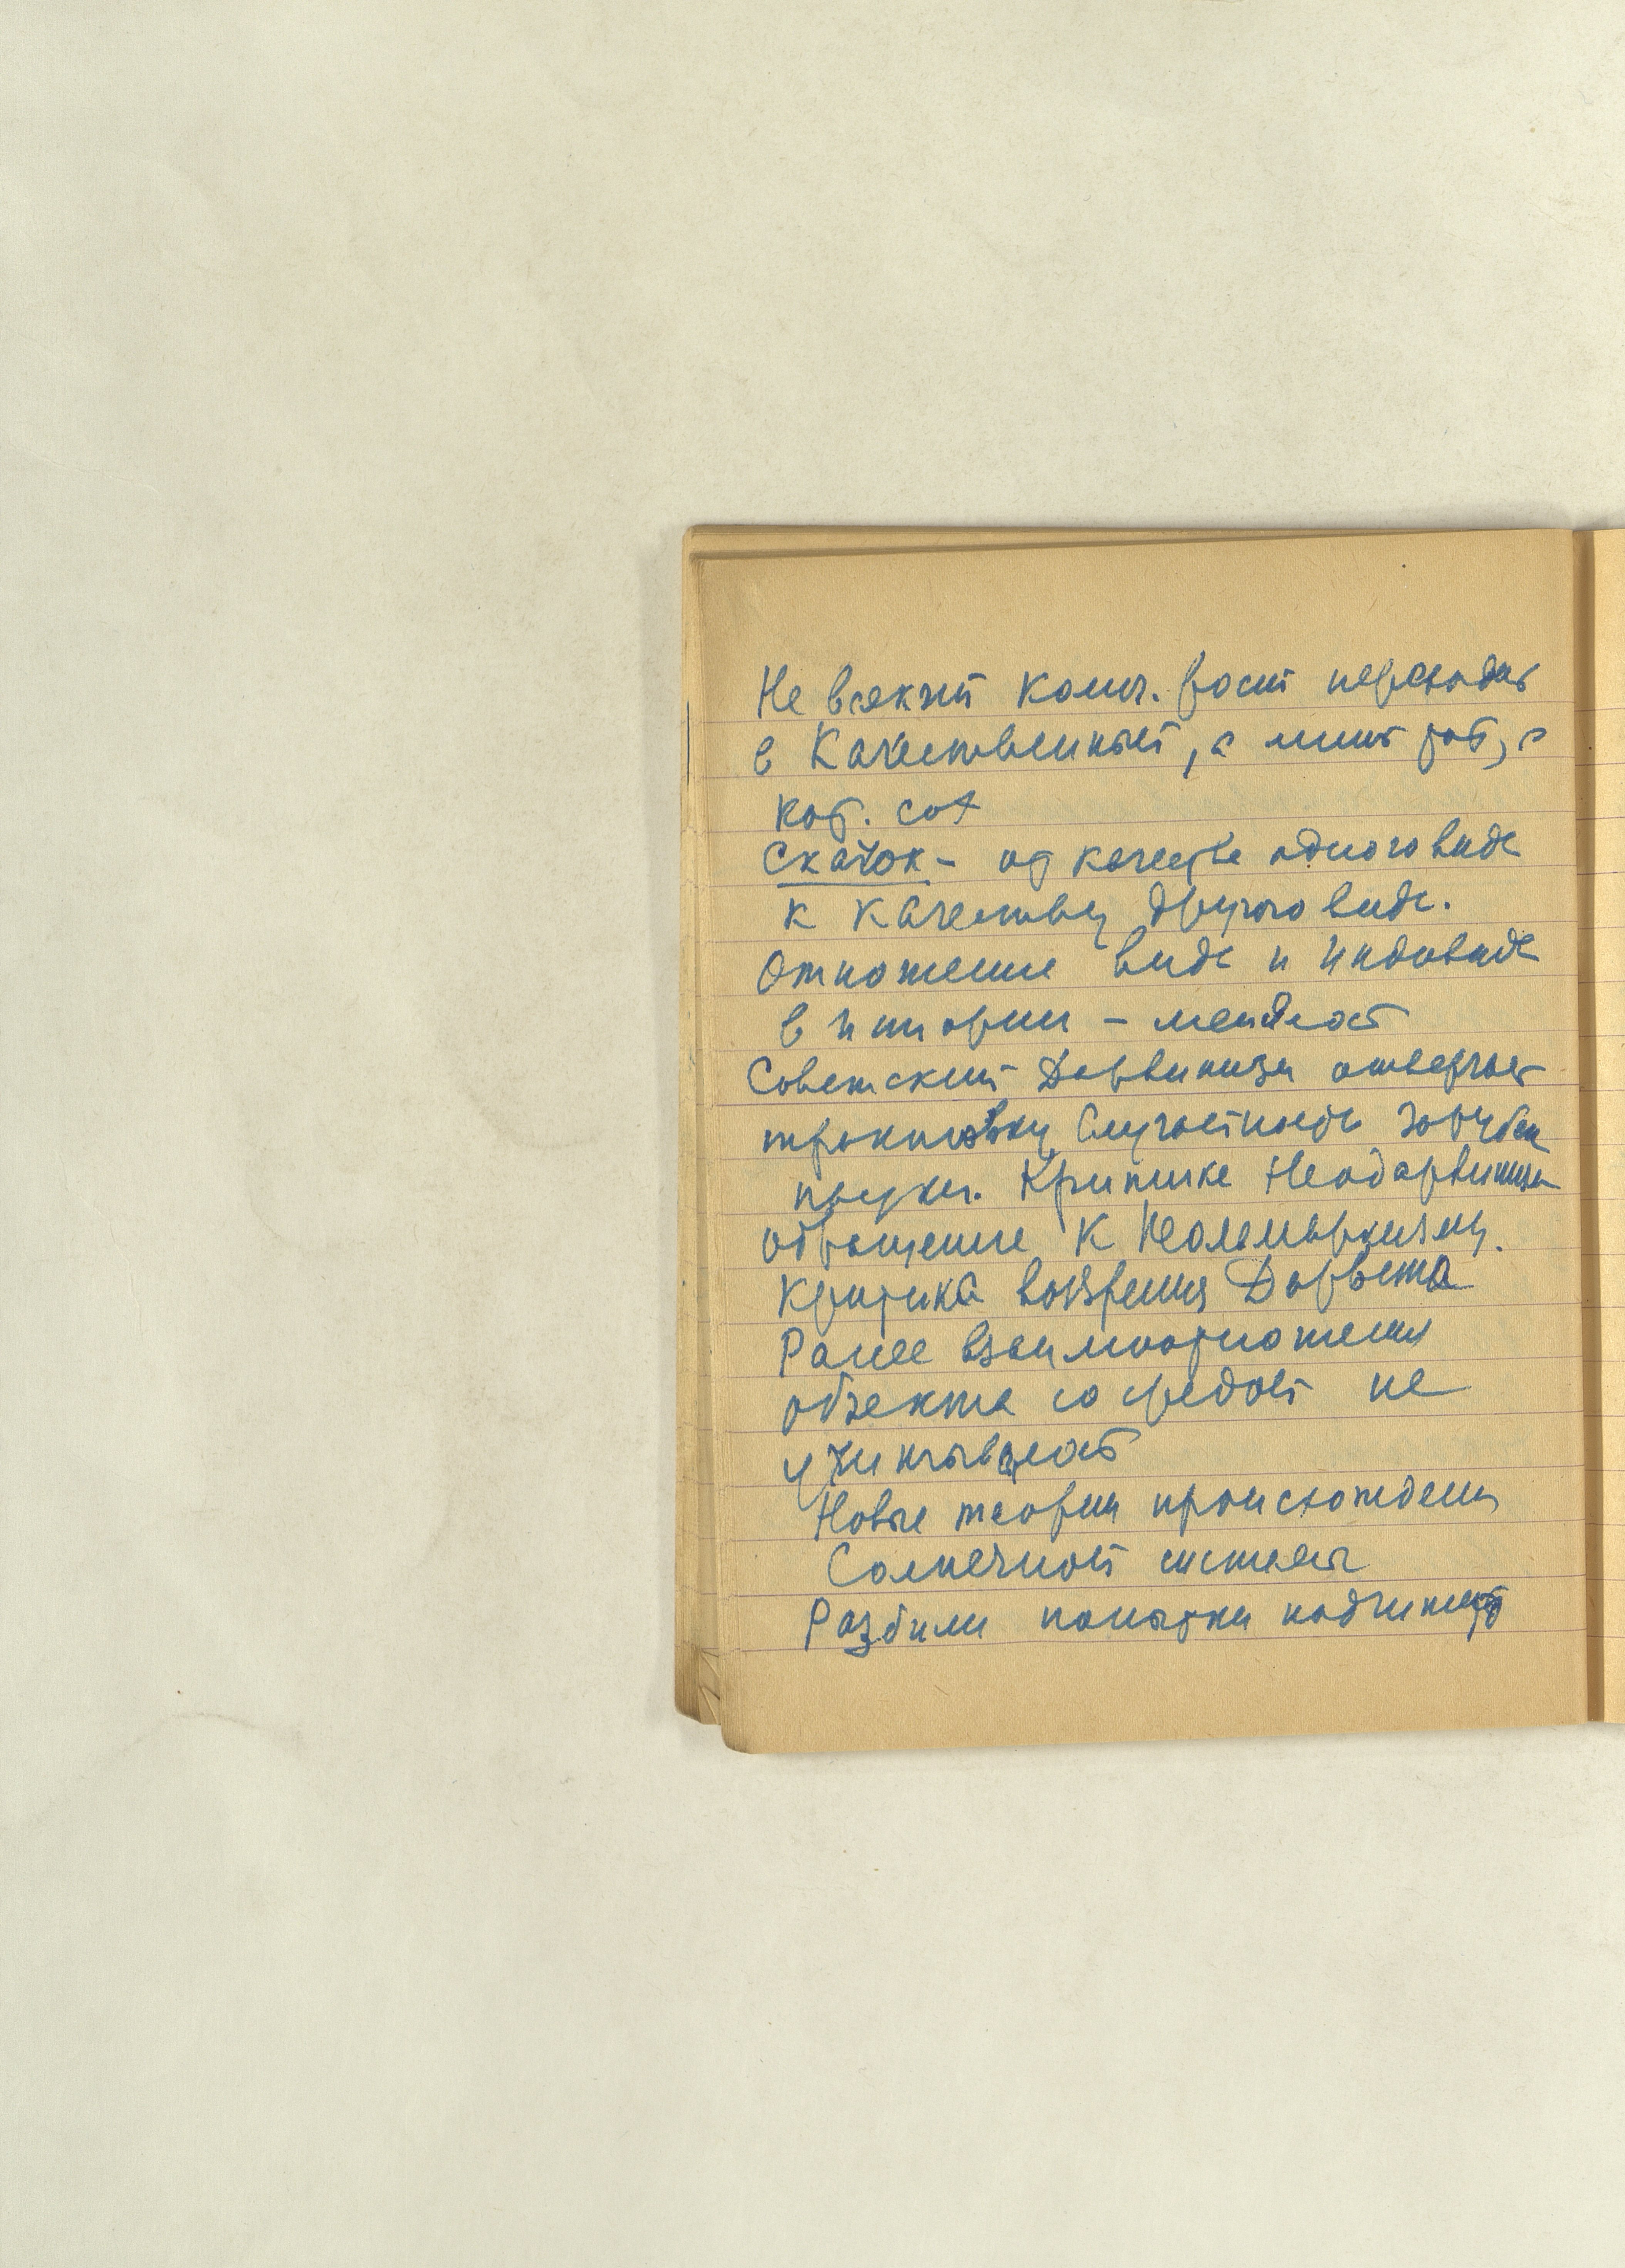 Не всякий колич. рост переходит
в качественный, а лишь тот, о
кот. сох
Скачок – от качества одного вида
к качеству другого вида.
Отношение вида и индивида
в истории – меняется
Советский Дарвинизм отвергает
трактовку случайности зарубеж
науки. Критике Неодарвинизма
обращение к Неоламаркизму.
Критика воззрения Дарвина
Ранее взаимоотношения
объекта со средой не
учитывают
Новые теории происхождения
Солнечной системы
Разбили попытки подчинить